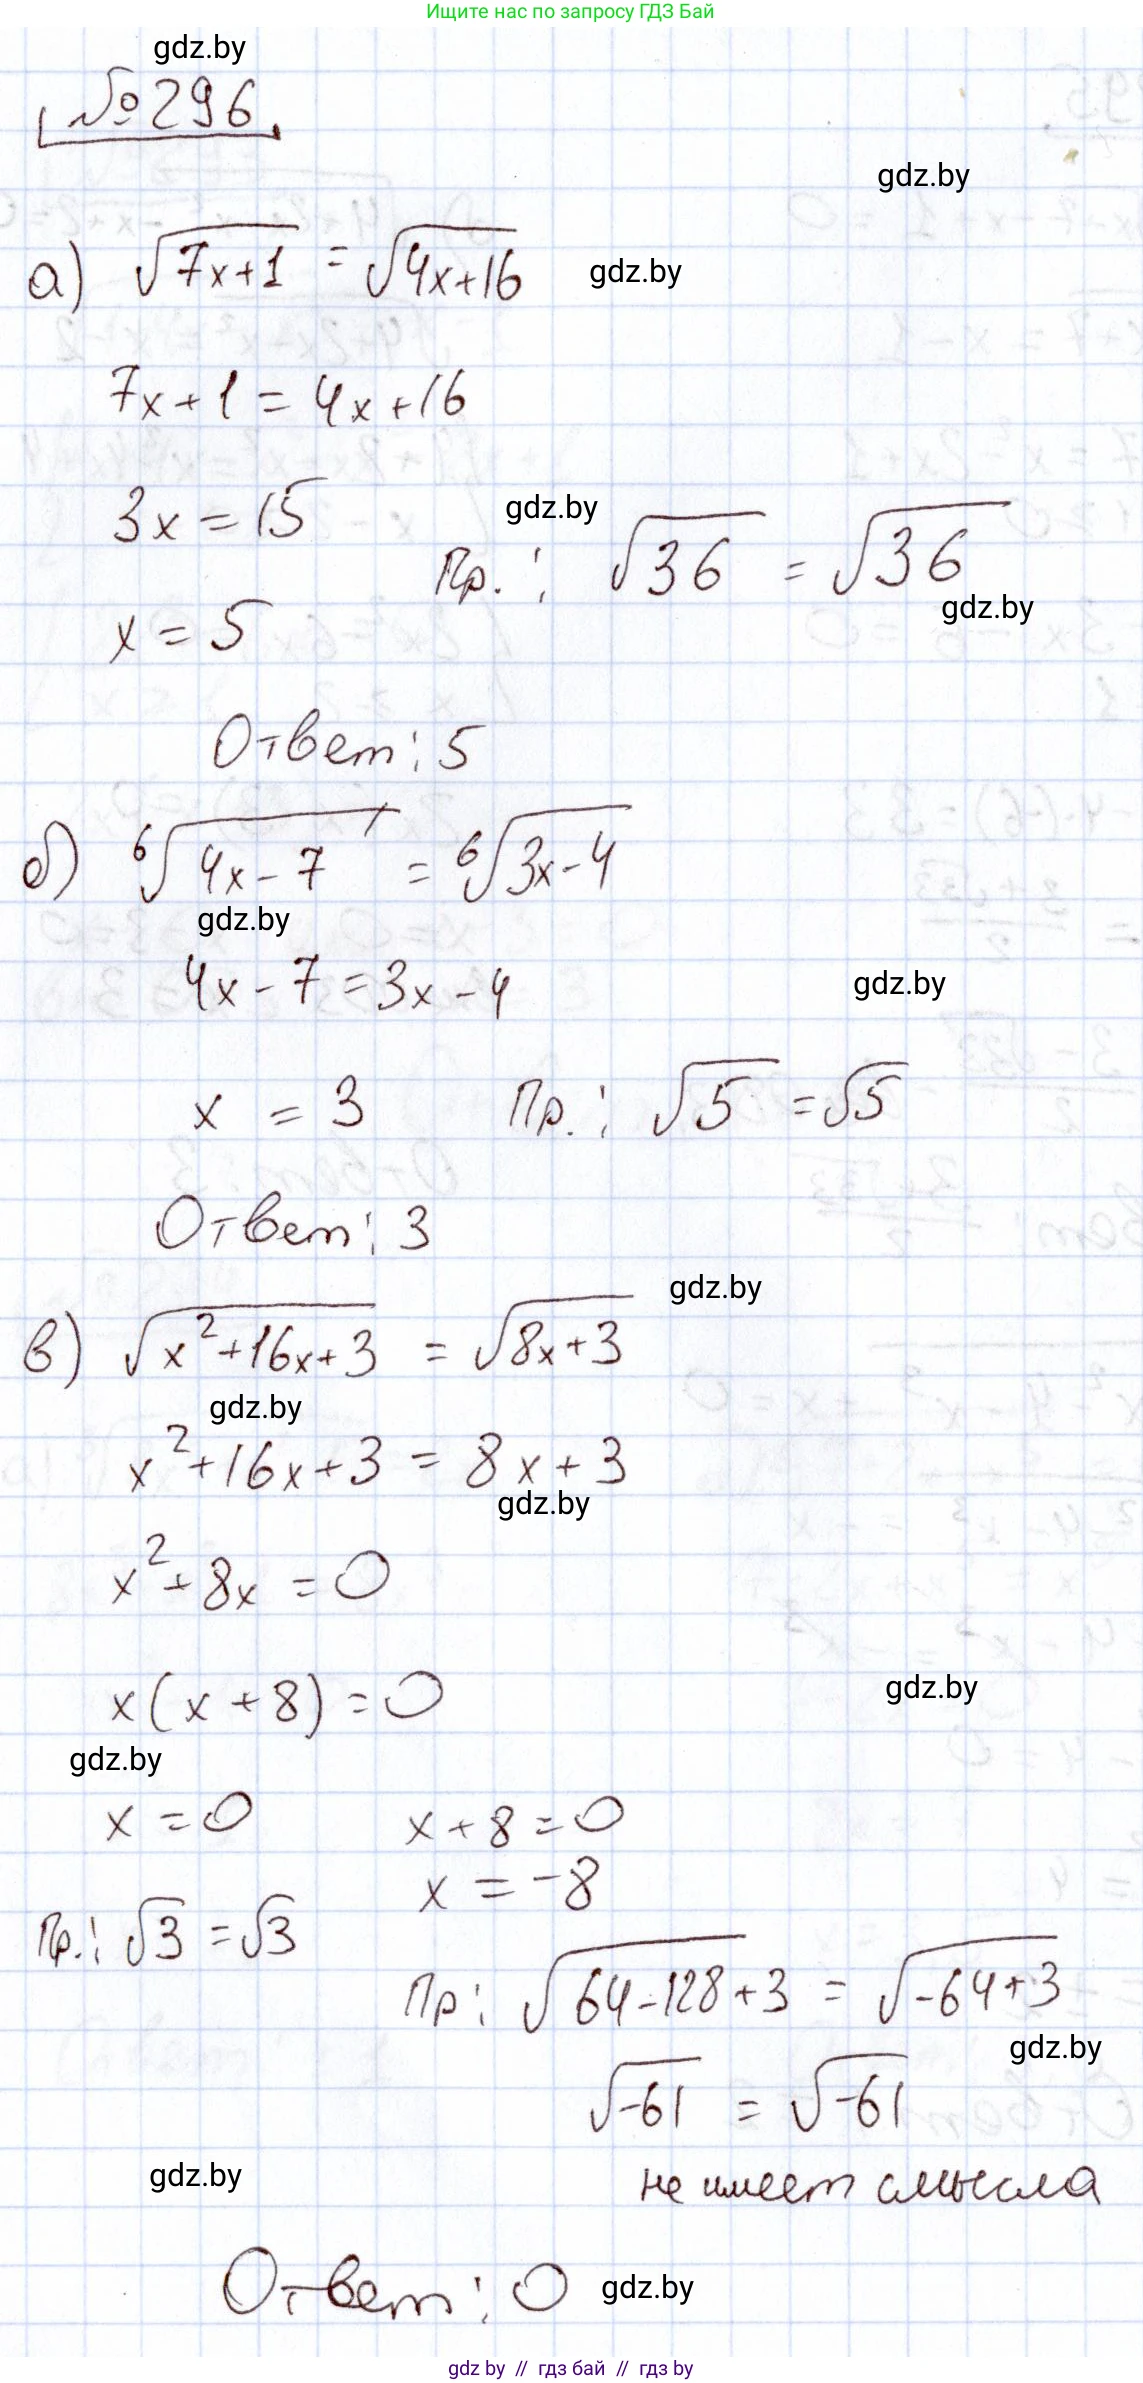 Ищите нас по запросу ГДЗ Бай
gdz.by
№296
gdz.by
а) √(7x+1) = √(4x+16) gdz.by
7x+1 = 4x+16
3x = 15 gdz.by
Пр.: √36 = √36
gdz.by
x = 5
Ответ: 5
б) ⁶√(4x-7) = ⁶√(3x-4)
gdz.by
4x-7 = 3x-4 gdz.by
x = 3 Пр.: √5 = √5
Ответ: 3
gdz.by
в) √(x²+16x+3) = √(8x+3)
gdz.by
x²+16x+3 = 8x+3
gdz.by
x²+8x = 0
x(x+8) = 0 gdz.by
gdz.by
x = 0 x+8 = 0
x = -8
Пр.: √3 = √3
Пр: √(64-128+3) = √(-64+3)
gdz.by
√-61 = √-61
gdz.by не имеет смысла
Ответ: 0 gdz.by
gdz by // гдз бай // гдз by